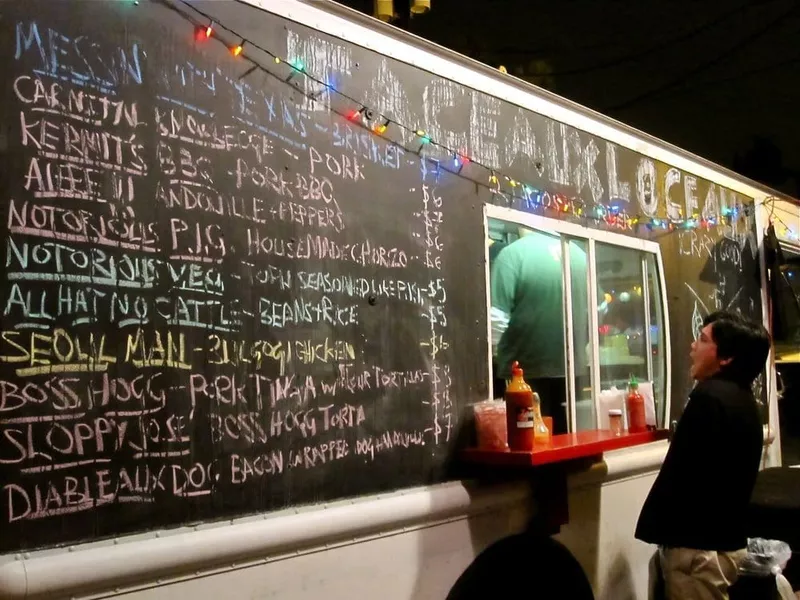 TACEAUX LOCEAUX
MESSIN WITH TEXAS - BRISKET
CARNITAL KNOWLEDGE - PORK
KERMIT'S BBQ - PORK BBQ $6
ANDOUILLE + PEPPERS
NOTORIOUS P.I.G. HOUSEMADE CHORIZO $6
NOTORIOUS VEG - TOFU SEASONED LIKE P.I.G. - $5
ALL HAT NO CATTLE - BEANS + RICE $5
SEOUL MAN - BULGOGI CHICKEN $6
BOSS HOGG - PORK TINGA W/ FLOUR TORTILLAS
SLOPPY JOSE BOSS HOGG TORTA
DIABLEAUX DOG BACON WRAPPED DOG $7